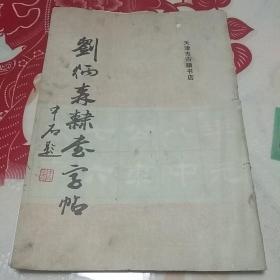 天津市古籍书店
劉炳森隸書字帖
中石題